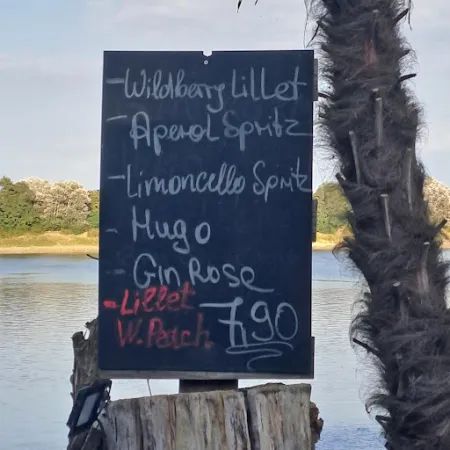 - Wildberry Lillet
- Aperol Spritz
- Limoncello Spritz
- Hugo
- Gin Rose
- Lillet
W. Peach 7,90